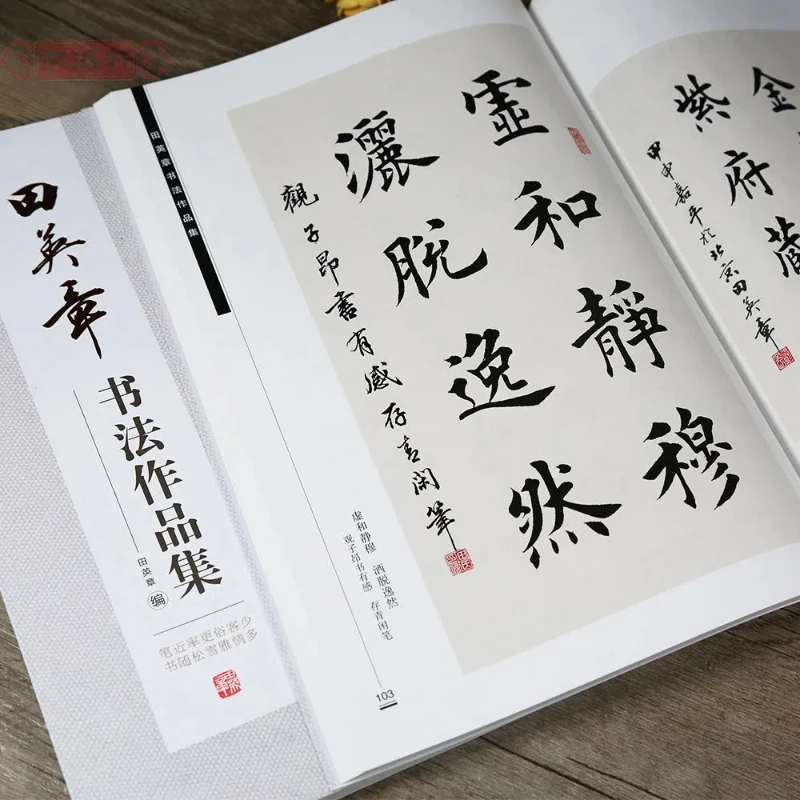 田英章
书法作品集
田英章 编
笔近率更俗客少
书随松雪雅情多
田英章书法作品集
虛和靜穆
灑脫逸然
觀子昂書有感 存青闲筆
虚和静穆 洒脱逸然
观子昂书有感 存青闲笔
103
金
紫府藏
甲申嘉平於北京田英章